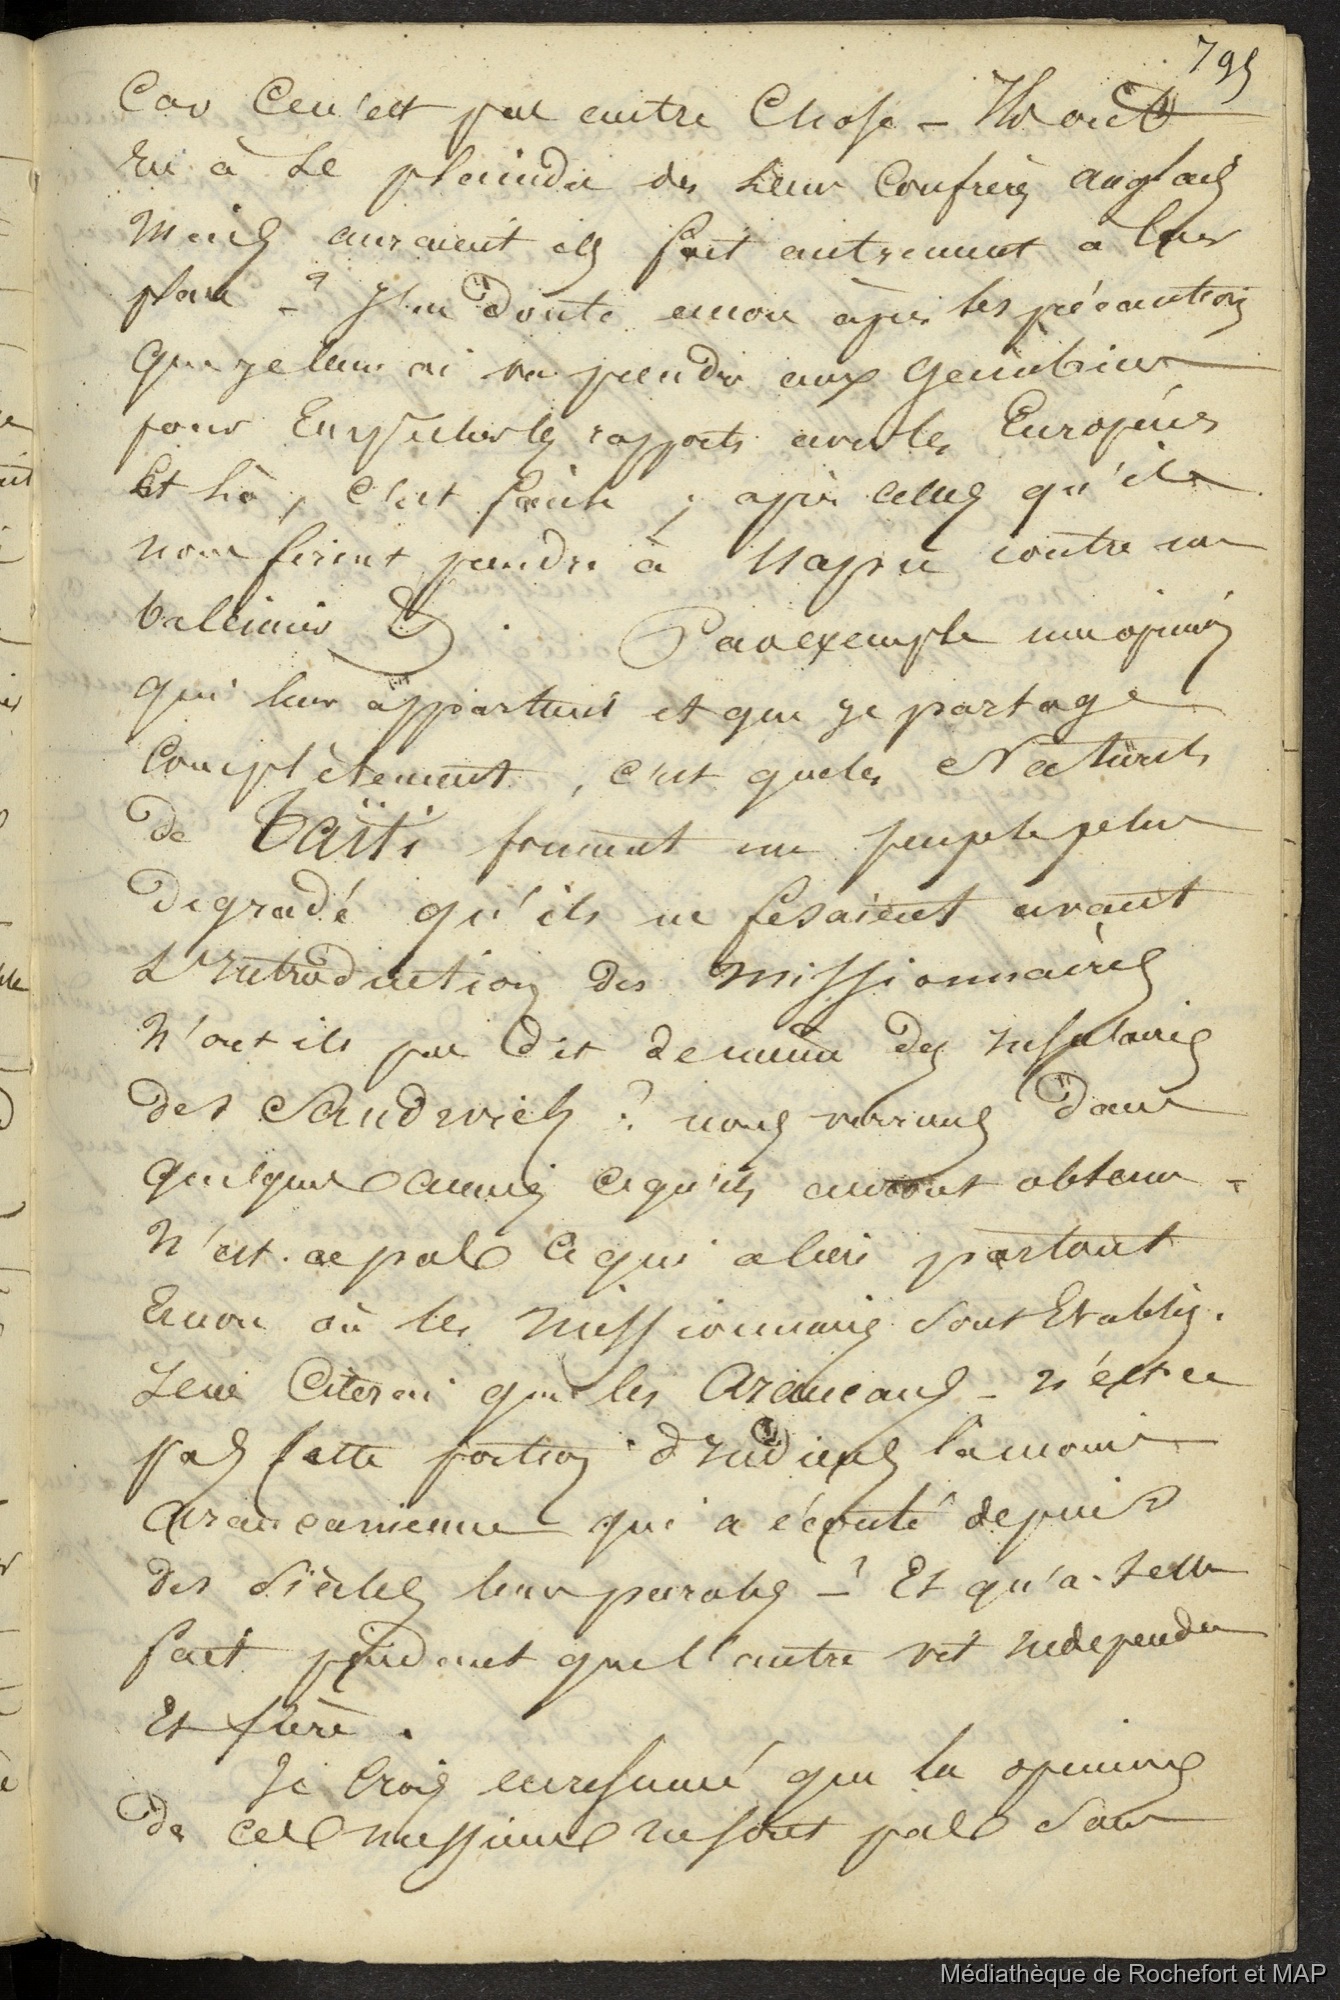 795
Car Ce n'est pas autre Chose – Ils ont
Eu à Se plaindre des Leurs Confrères anglais
Mais auraient ils fait autrement à leur
place – ? J'en Doute encore après les précautions
Que je leur ai vu prendre aux Gambier
pour les rapports avec les Européens
Et Là, C'est facile ; après Celles qu'ils
nous firent prendre à contre un
baleinier. Par exemple une opinion
qui leur appartient et que je partage
Complètement, c'est que les Naturels
de Taïti forment un peuple plus
Dégradé qu'ils ne fesaient avant
L'Introduction des Missionnaires
N'ont ils pas dit de même des Insulaires
des Sandwich ? nous verrons Dans
quelques années ce qu'ils auront obtenu –
N'est-ce pas Ce qui a lieu partout
Encore où les Missionnaires Sont Etablis.
Je ne Citerai que les Araucans – n'est ce
pas Cette portion d'Indiens la moins
araucanienne qui a écouté depuis
des Siècles leurs paroles – ? Et qu'a-t-elle
fait pendant que l'autre vit Indépendante
Et fière.
Je Crois en résumé que les opinions
de ces messieurs ne sont pas Sans
Médiathèque de Rochefort et MAP